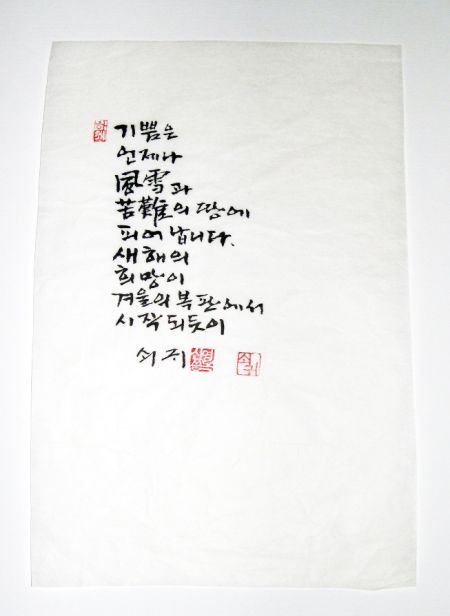 기쁨은
언제나
風雪과
苦難의 땅에
피어 납니다.
새해의
희망이
겨울의 복판에서
시작되듯이
쇠귀